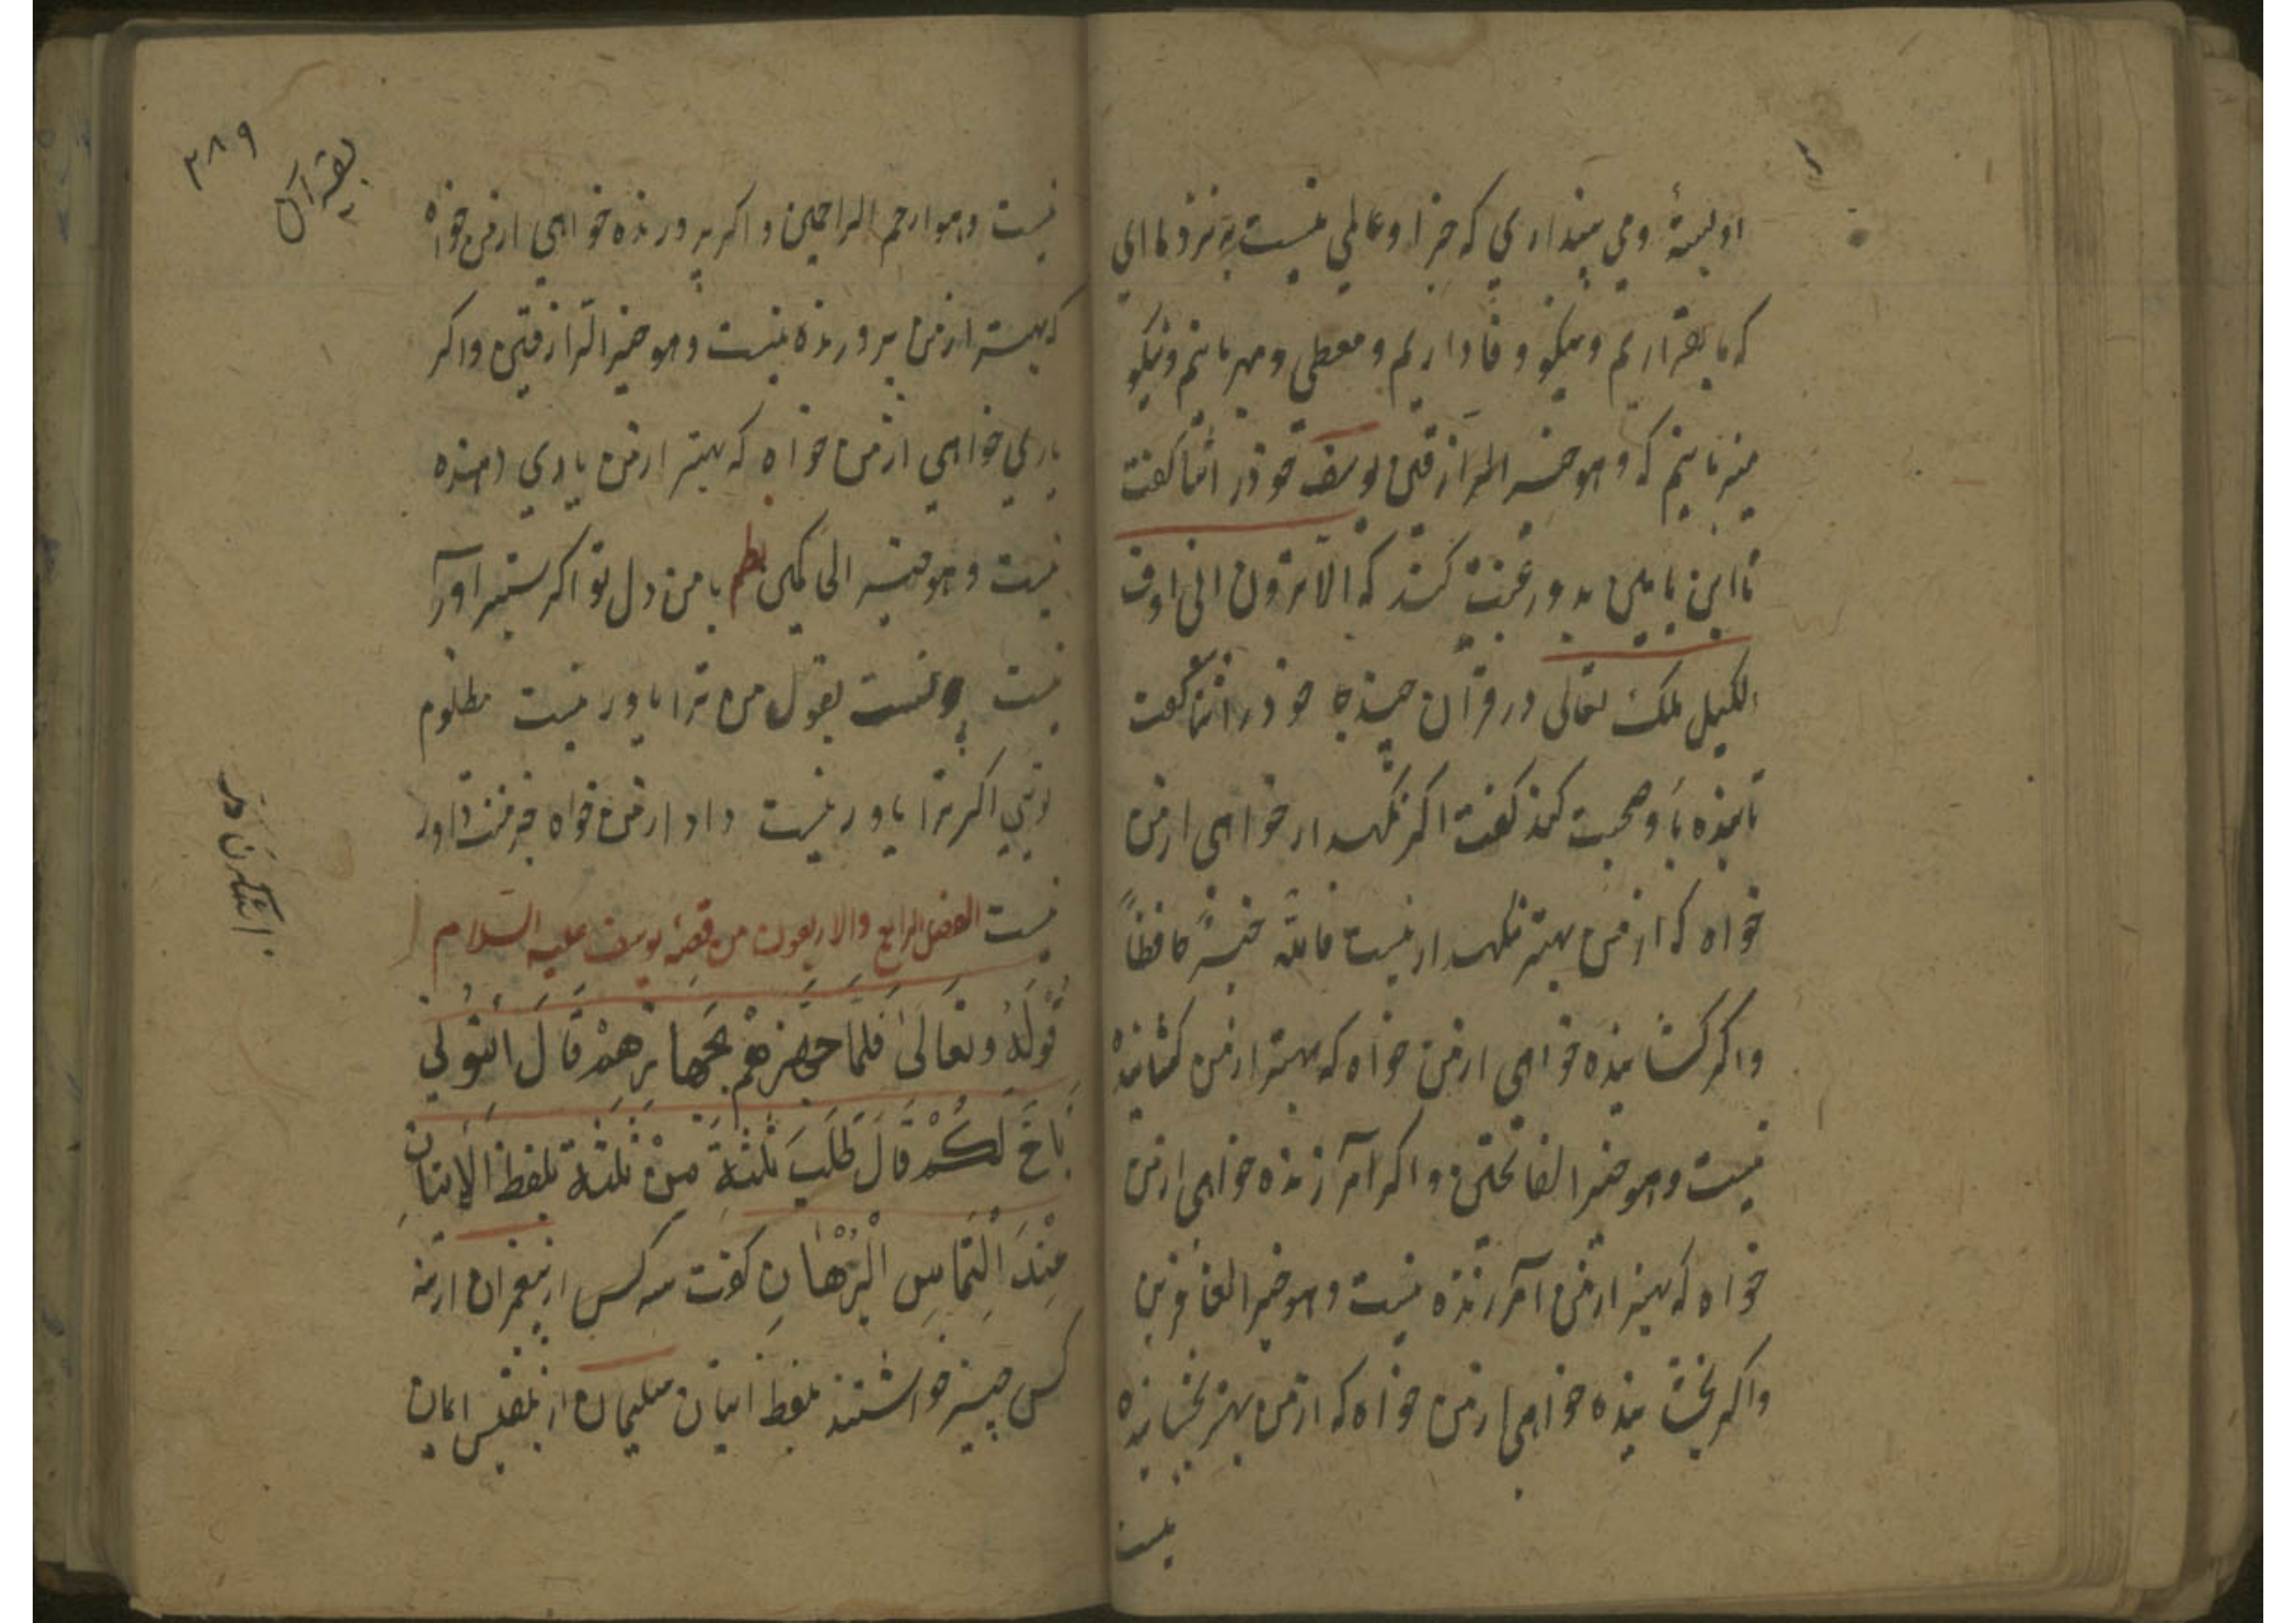 او بستهٔ و می پنداری که جز او عاملی نیست بدنزد ما ای
که ما بقراریم و نیکو وفاداریم و معطی و مهربانیم و نیکو
میزبانیم که و هو خیر الرازقین یوسف خود را ثنا گفت
تا ابن یامین بدو رغبت کند که الا ترون انی اوف
الکیل ملک تعالی در قرآن چند جا خود را ثنا گفت
تا بنده با او صحبت کند گفت اگر نگهدار خواهی از من
خواه که از من بهتر نگهدار نیست فالله خیرٌ حافظاً
و اگر گشاینده خواهی از من خواه که بهتر از من گشاینده
نیست و هو خیر الفاتحین و اگر آمرزنده خواهی از من
خواه که بهتر از من آمرزنده نیست و هو خیر الغافرین
و اگر بخشاینده خواهی از من خواه که از من بهتر بخشاینده
نیست
۳۸۹
نیست و هو ارحم الراحمین و اگر پرورنده خواهی از من خواه
که بهتر از من پرورنده نیست و هو خیر الرازقین و اگر
یاری خواهی از من خواه که بهتر از من یاری دهنده
نیست و هو خیر الحاکمین نظم با من دل تو اگر ستیر آور
نیست بقول من ترا باور نیست مظلوم
تویی اگر ترا یاور نیست داد از من خواه جز منت داور
نیست الفصل الرابع والاربعون من قصهٔ یوسف علیه السلام
قَوْلُهُ وتعَالَیٰ فَلَمَّا جهَّزهُمْ بجَهازِهمْ قَالَ ائتونی
بِاَخٍ لَکُمْ قَالَ طَلَبَ ثَلٰثَةٌ مِنْ ثَلٰثَةٍ بلفظ الاِتیَانِ
عِنْدَ الْتِمَاسِ الْبُرْهَانِ گفت سه کس از پیغمبران از سه
کس چیز خواستند بلفظ اتیان سلیمان از بلقیس ایمان